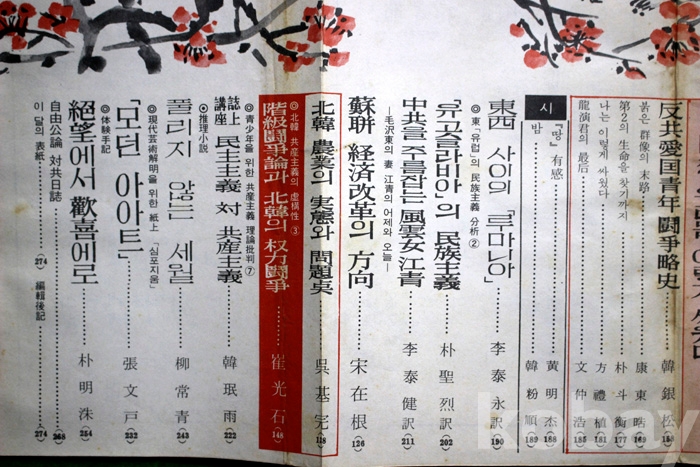 反共愛国青年 闘争略史 韓銀松 158
젊은 群像의 末路 康東晧 169
第2의 生命을 찾기까지 朴斗衡 177
나는 이렇게 싸웠다 方禮植 181
龍演君의 最后 文仲浩 185
시
「땅」有感 黄明杰 188
밤 韓粉順 189
東西 사이의 「루마니아」 李泰永訳 190
◎ 東「유럽」의 民族主義 分析 ②
「유고슬라비아」의 民族主義 朴聖烈訳 202
中共을 주름잡는 風雲女 江青 李泰健訳 211
—毛沢東의 妻 江青의 어제와 오늘—
蘇聯 経済改革의 方向 宋在根 126
北韓 農業의 実態와 問題点 呉基完 118
◎ 北韓 共産主義의 虚構性 ③
階級鬪爭論과 北韓의 权力鬪爭 崔光石 148
◎ 青少年을 위한 共産主義 理論批判 ⑦
誌上講座 民主主義 対 共産主義 韓珉雨 222
◎ 推理小説
풀리지 않는 세월 柳常青 243
◎ 現代芸術解明을 위한 紙上 「심포지움」
「모던 아아트」 張文戸 232
◎ 体験手記
絕望에서 歡喜에로 朴明洙 254
自由公論 対共日誌 268
이 달의 表紙 274 編輯後記 274